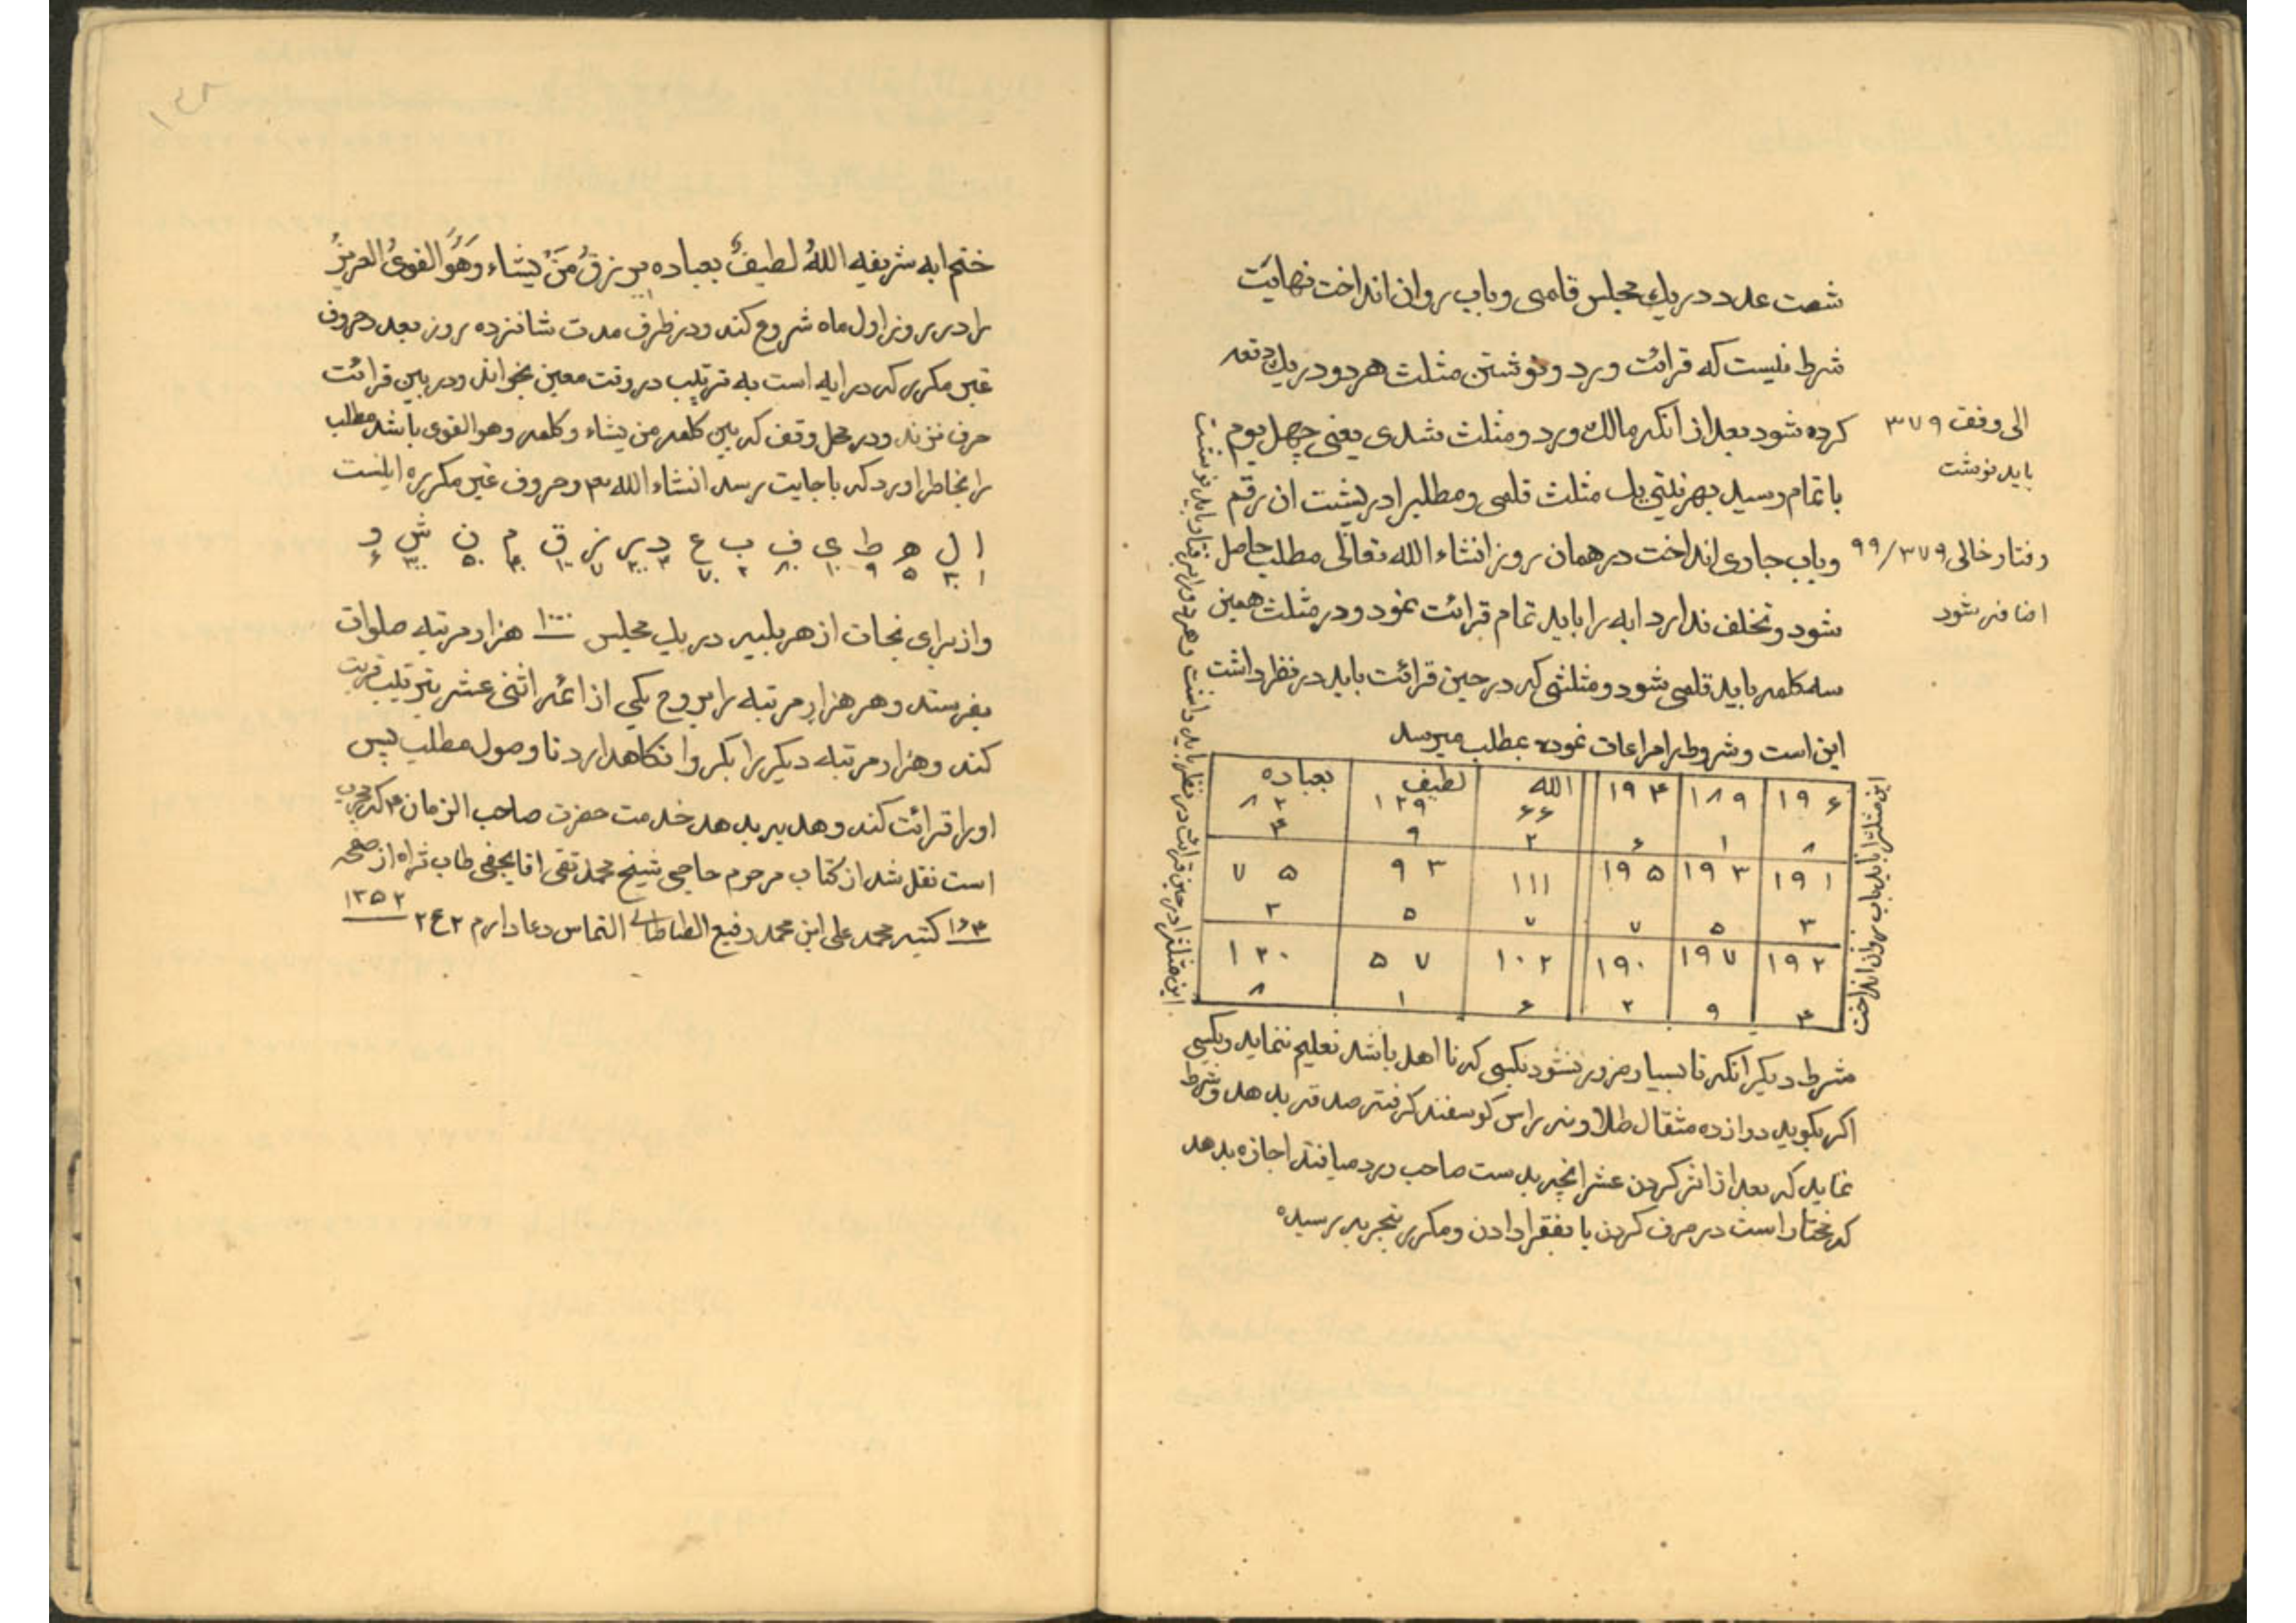 شصت عدد در یك مجلس قلمی و باب روان انداخت نهایت
شرط نیست که قرائت ورد و نوشتن مثلث هر دو در یك دفعه
کرده شود بعد از انکه مالك ورد و مثلث شدی یعنی چهل یوم
باتمام رسید بهر نیتی یك مثلث قلمی و مطلبرا در پشت ان رقم
و باب جاری انداخت در همان روز انشاء الله تعالی مطلب حاصل
شود و تخلف ندارد ایه را باید تمام قرائت نمود و در مثلث همین
سه کلمه باید قلمی شود و مثلثی که در حین قرائت باید در نظر داشت
این است و شروط را مراعات نموده بمطلب میرسد
الی وفق ۳۷۹
باید نوشت
رفتار خالی ۹۹/۳۷۹
اضافه شود
۱۹۶ ۱۸۹ ۱۹۴ الله لطیف بعباده
۶۶ ۱۲۹ ۸۴
۸ ۱ ۶ ۲ ۹ ۴
۱۹۱ ۱۹۳ ۱۹۵ ۱۱۱ ۹۳ ۷۵
۳ ۵ ۷ ۷ ۵ ۳
۱۹۲ ۱۹۷ ۱۹۰ ۱۰۲ ۵۷ ۱۲۰
۴ ۹ ۲ ۶ ۱ ۸
این مثلث را باید نوشته باب روان انداخت
این مثلث را در حین قرائت در نظر باید داشت و هر دو را برابر باید نوشت
شرط دیکر انکه تا بسیار ضرور نشود بکسی که نا اهل باشد تعلیم ننماید و بکسی
اکر بکوید دوازده مثقال طلا و سه راس کوسفند کرفته صدقه بدهد و شرط
نماید که بعد از اثر کردن عشر انچه بدست صاحب ورد میافتد اجازه بدهد
که مختار است در صرف کردن یا بفقرا دادن و مکرر بتجربه رسیده
ختم ایه شریفه اللهُ لطیفٌ بعباده یرزقُ مَنْ یشاء وَهُوَ القویُ العزیزُ
را در روز اول ماه شروع کند و در ظرف مدت شانزده روز بعدد حروف
غیر مکرر که در ایه است به ترتیب در وقت معین بخواند و در بین قرائت
حرف نزند و در محل وقف که بین کلمه من یشاء و کلمه و هو القوی باشد مطلب
را بخاطر اورد که باجابت رسد انشاء الله تعم و حروف غیر مکرره اینست
ا ل ه ط ی ف ب ع د ر ز ق م ن ش و
۱ ۳۰ ۵ ۹ ۱۰ ۸۰ ۲ ۷۰ ۴ ۲۰۰ ۷ ۱۰۰ ۴۰ ۵۰ ۳۰۰ ۶
و از برای نجات از هر بلیه در یك مجلس ۱۰۰۰ هزار مرتبه صلوات
بفرستد و هر هزار مرتبه را بروح یکی از ائمه اثنی عشر بترتیب قربت
کند و هزار مرتبه دیکر را بکرو انکاهدارد تا وصول مطلب پس
او را قرائت کند و هدیه بدهد خدمت حضرت صاحب الزمان ع که مجرب
است نقل شد از کتاب مرحوم حاجی شیخ محمد تقی اقا نجفی طاب ثراه از صفحه
۱۶۴ کتبه محمد علی ابن محمد رفیع الطباطبائی التماس دعا دارم ۲ ع ۲ ۱۳۵۲